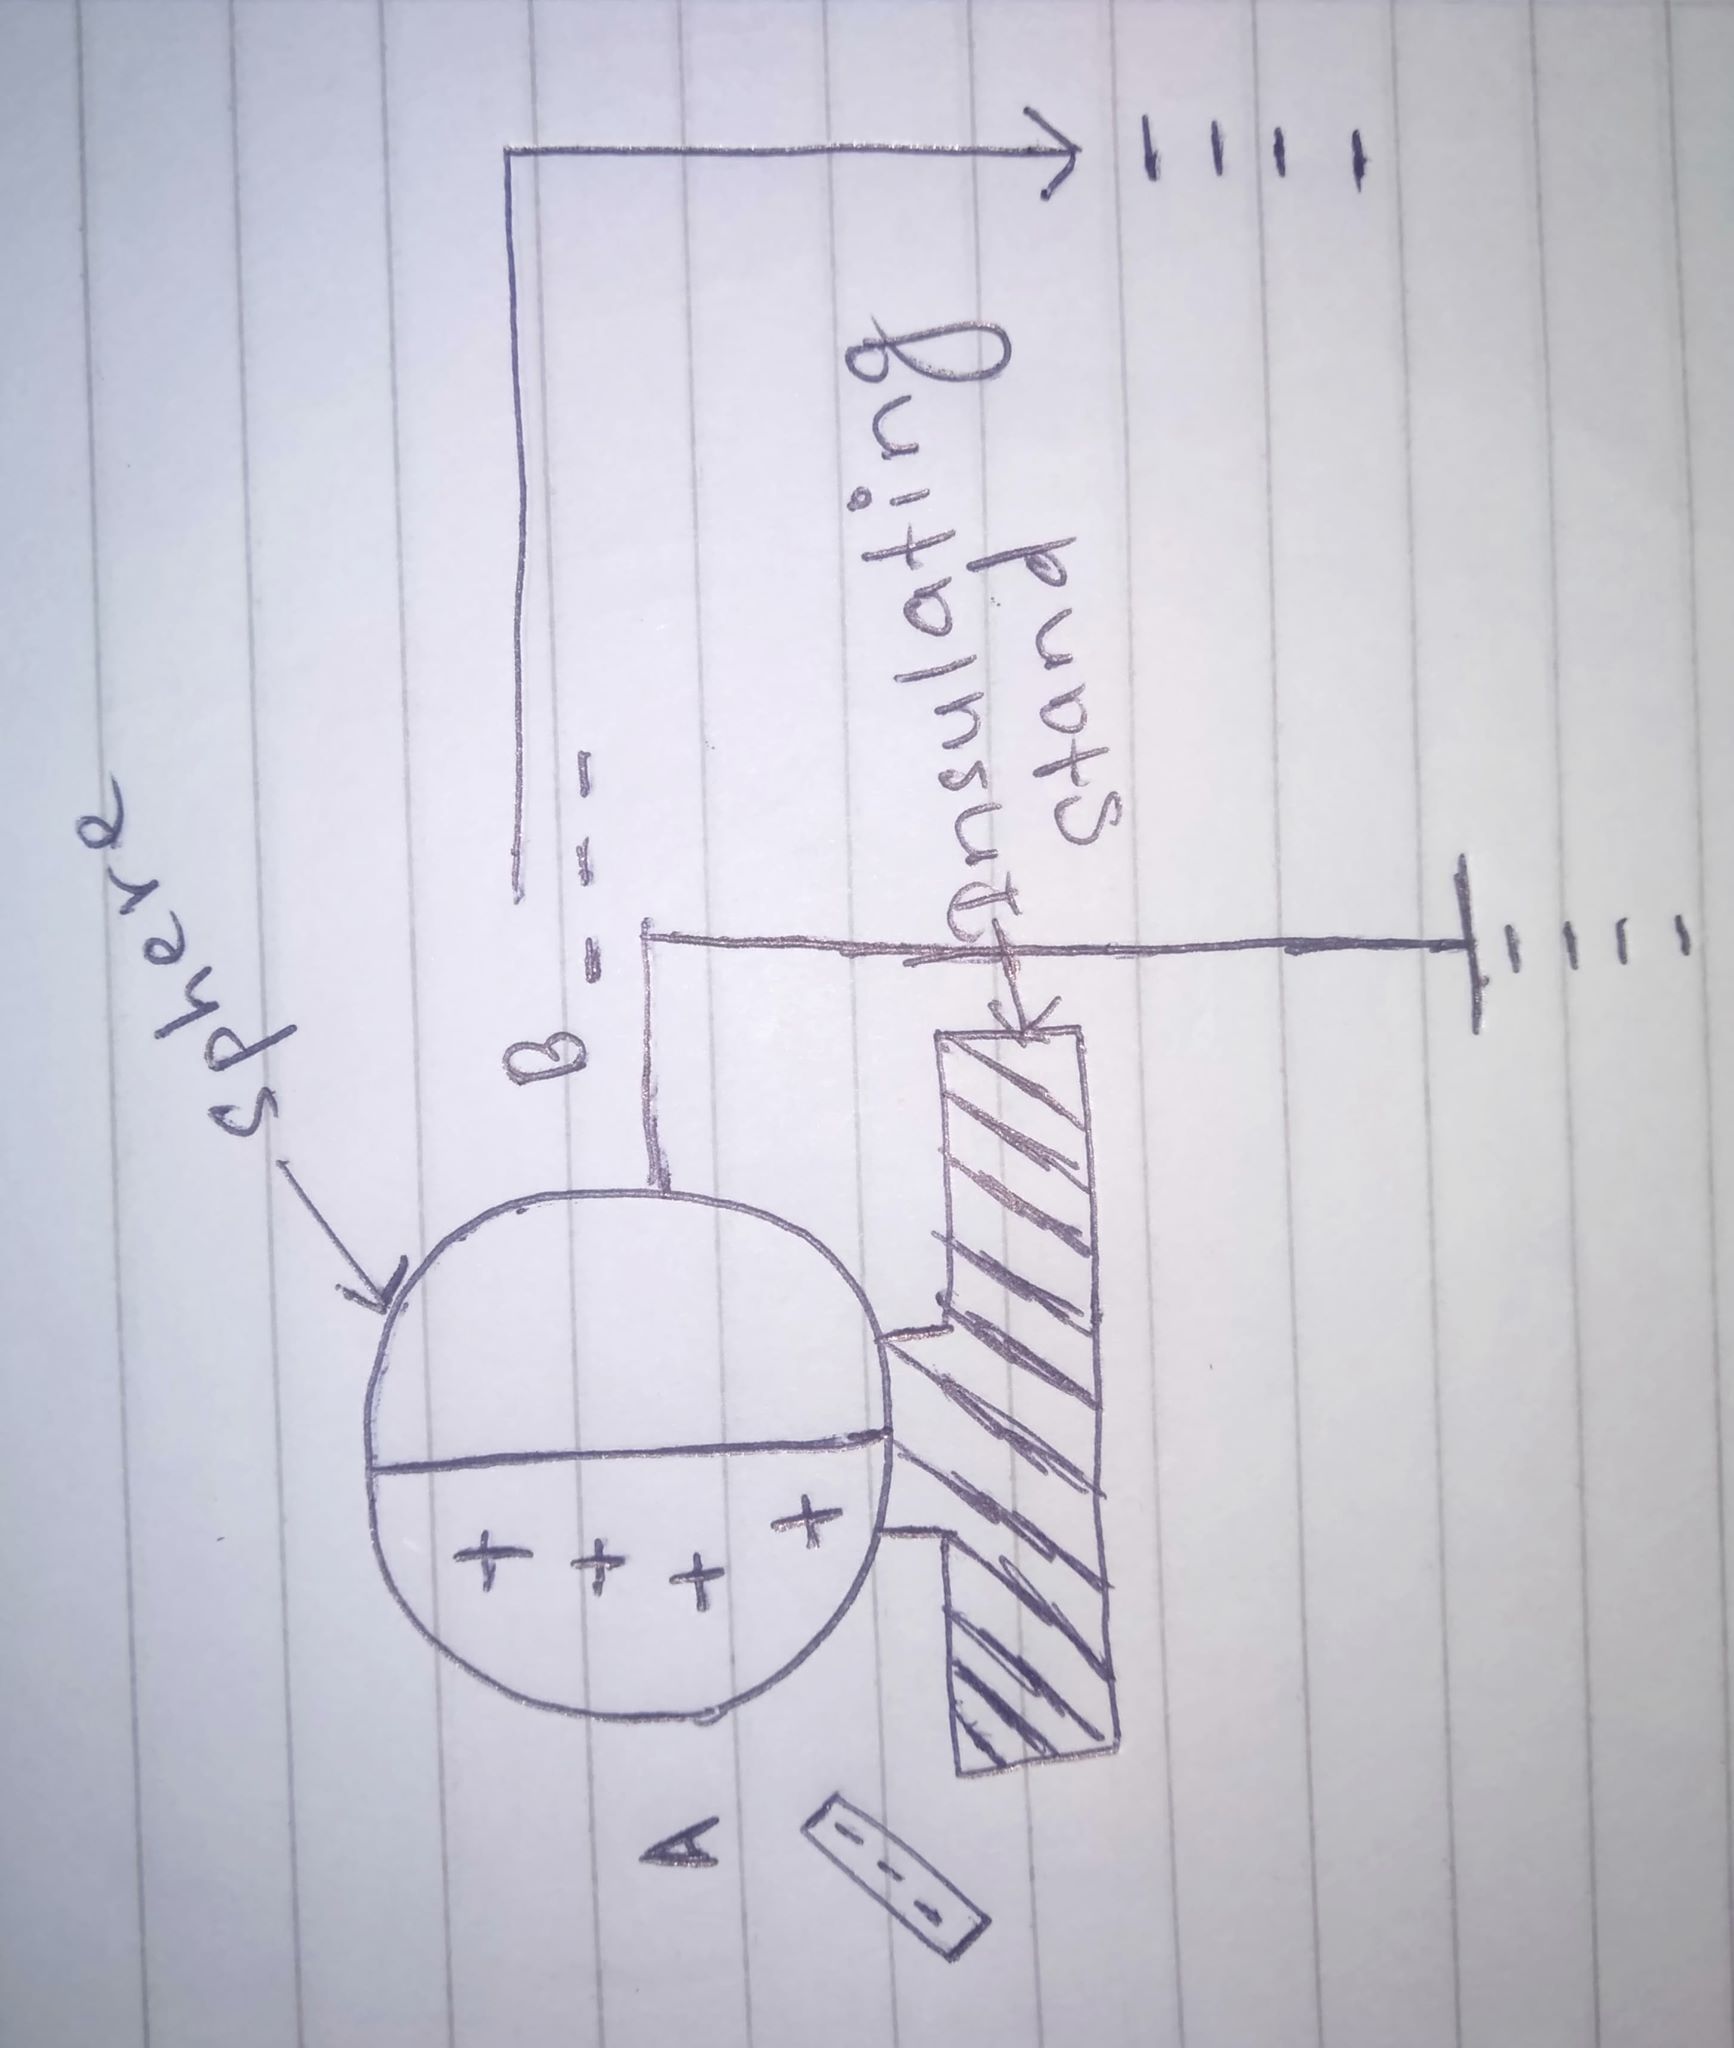 sphere
+
+
B
- - -
+
A
+
- - -
Insulating
stand
-
-
-
-
-
-
-
-